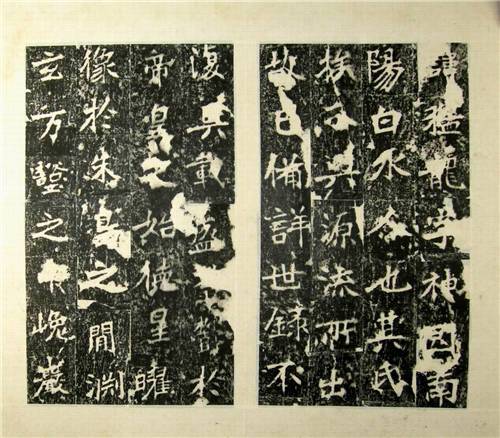 諱猛龍字神囧南
陽白水人也其氏
族分興源流所出
故已備詳世錄不
復其載盛於
帝皇之始德星曜
像於朱鳥之間淵
玄万壑之中巉巖